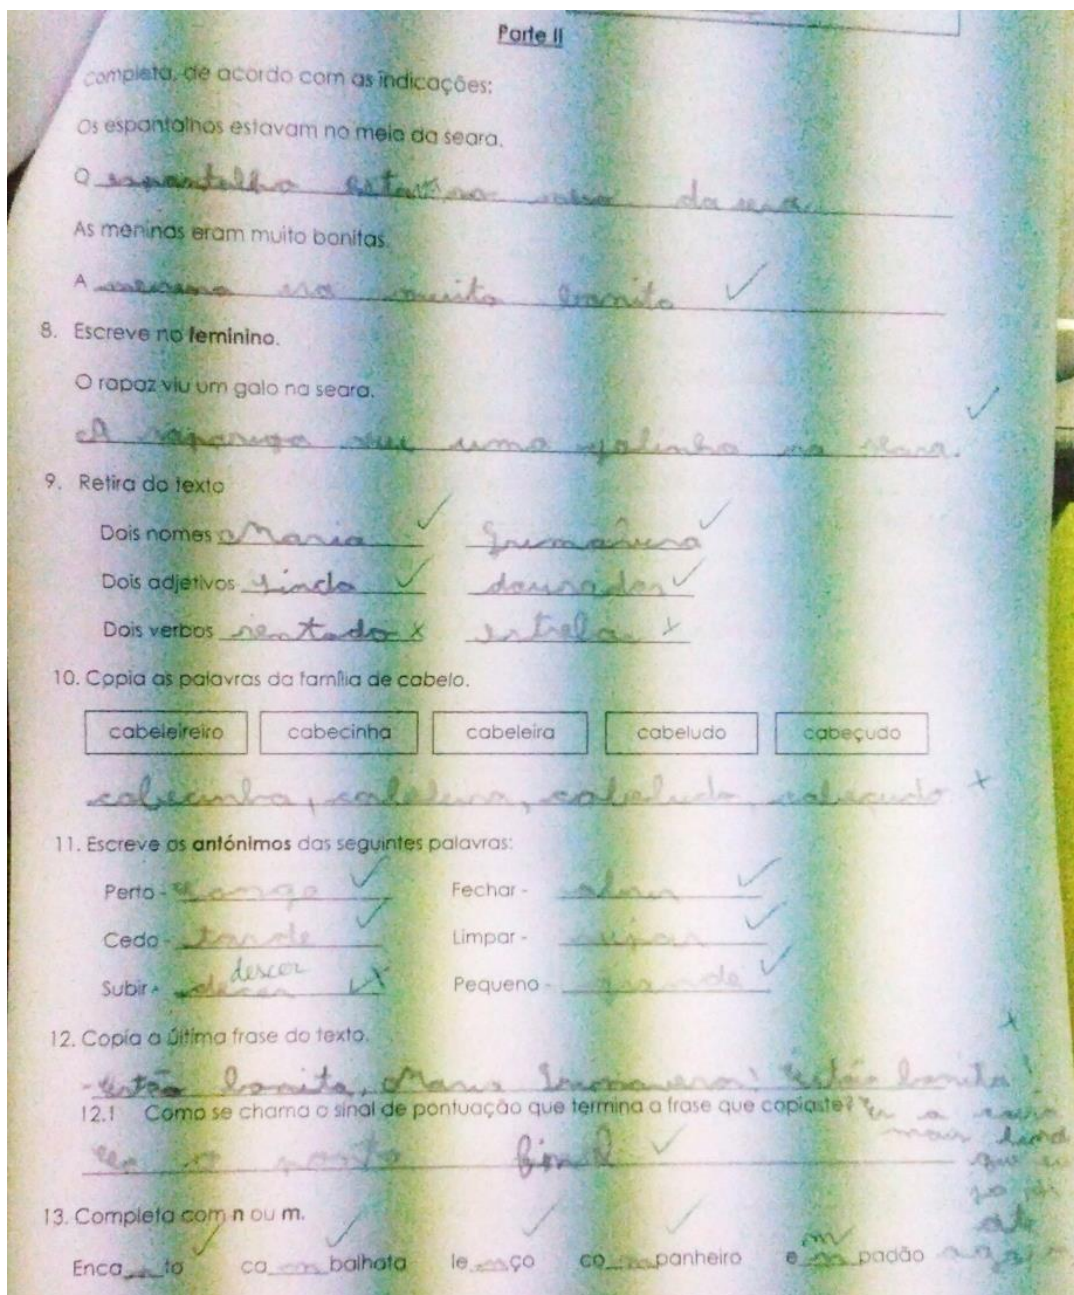 Parte II
completa, de acordo com as indicações:
Os espantalhos estavam no meio da seara.
O espantalho estava no meio da seara
As meninas eram muito bonitas.
A menina era muito bonita
8. Escreve no feminino.
O rapaz viu um galo na seara.
A rapariga viu uma galinha na seara.
9. Retira do texto
Dois nomes Maria Primavera
Dois adjetivos linda dourados
Dois verbos sentado estrela
10. Copia as palavras da família de cabelo.
cabeleireiro cabecinha cabeleira cabeludo cabeçudo
cabecinha, cabeleira, cabeludo, cabeçudo
11. Escreve os antónimos das seguintes palavras:
Perto - longe Fechar - abrir
Cedo - tarde Limpar - sujar
descer
Subir - decer Pequeno - grande
12. Copia a última frase do texto.
- Estás bonita, Maria Primavera! Estás bonita!
12.1 Como se chama o sinal de pontuação que termina a frase que copiaste? És a
mais linda
que eu
ponto final
13. Completa com n ou m.
m
Enca n to ca m balhota le n ço co m panheiro e n padão